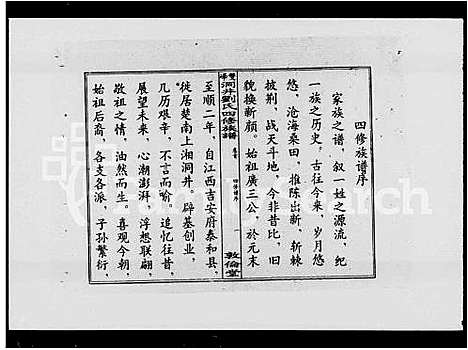 四修族谱序
家族之谱，叙一姓之源流，纪
一族之历史，古往今来，岁月悠
悠，沧海桑田，推陈出新，斩棘
披荆，战天斗地，今非昔比，旧
貌换新颜，始祖廣三公，於元末
洞井劉氏四修族譜
四修譜序
敦倫堂
至顺二年，自江西吉安府泰和县，
徙居楚南上湘洞井。辟基创业，
几历艰辛，不言而喻。追忆往昔，
展望未来，心潮澎湃，浮想联翩，
敬祖之情，油然而生。喜观今朝，
始祖后裔，各支各派，子孙繁衍，